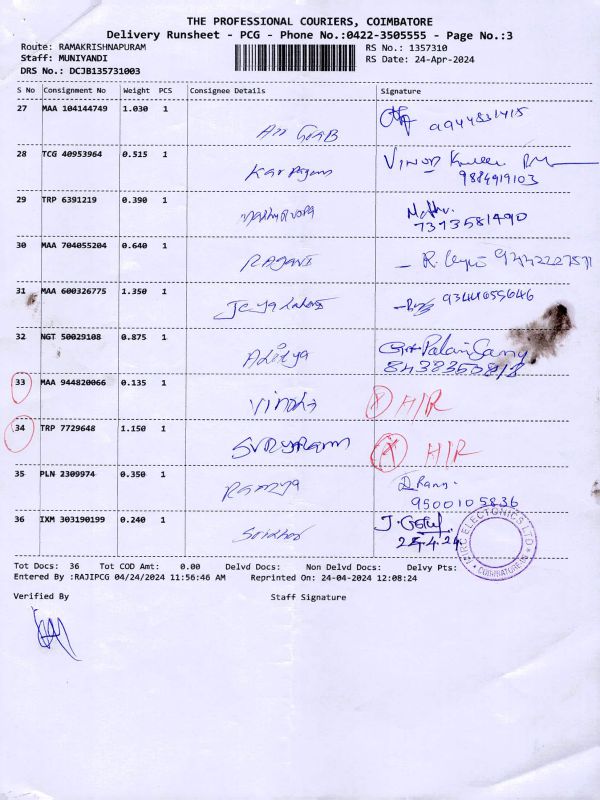 THE PROFESSIONAL COURIERS, COIMBATORE
Delivery Runsheet - PCG - Phone No.:0422-3505555 - Page No.:3
Route: RAMAKRISHNAPURAM RS No.: 1357310
Staff: MUNIYANDI RS Date: 24-Apr-2024
DRS No.: DCJB135731003
S No Consignment No Weight PCS Consignee Details Signature
27 MAA 104144749 1.030 1
9944831415
28 TCG 40953964 0.515 1 Karpagam Vinod
9884919103
29 TRP 6391219 0.390 1
7373581490
30 MAA 704055204 0.640 1 RAJANI R.
31 MAA 600326775 1.350 1 9344055646
32 NGT 50029108 0.875 1 Aditya
33 MAA 944820066 0.135 1 H/R
34 TRP 7729648 1.150 1 H/R
35 PLN 2309974 0.350 1 Ramya
9500105836
36 IXM 303190199 0.240 1 Sridhar J.
25.4.24
ELECTONICS LTD
COIMBATORE
Tot Docs: 36 Tot COD Amt: 0.00 Delvd Docs: Non Delvd Docs: Delvy Pts:
Entered By :RAJIPCG 04/24/2024 11:56:46 AM Reprinted On: 24-04-2024 12:08:24
Verified By Staff Signature